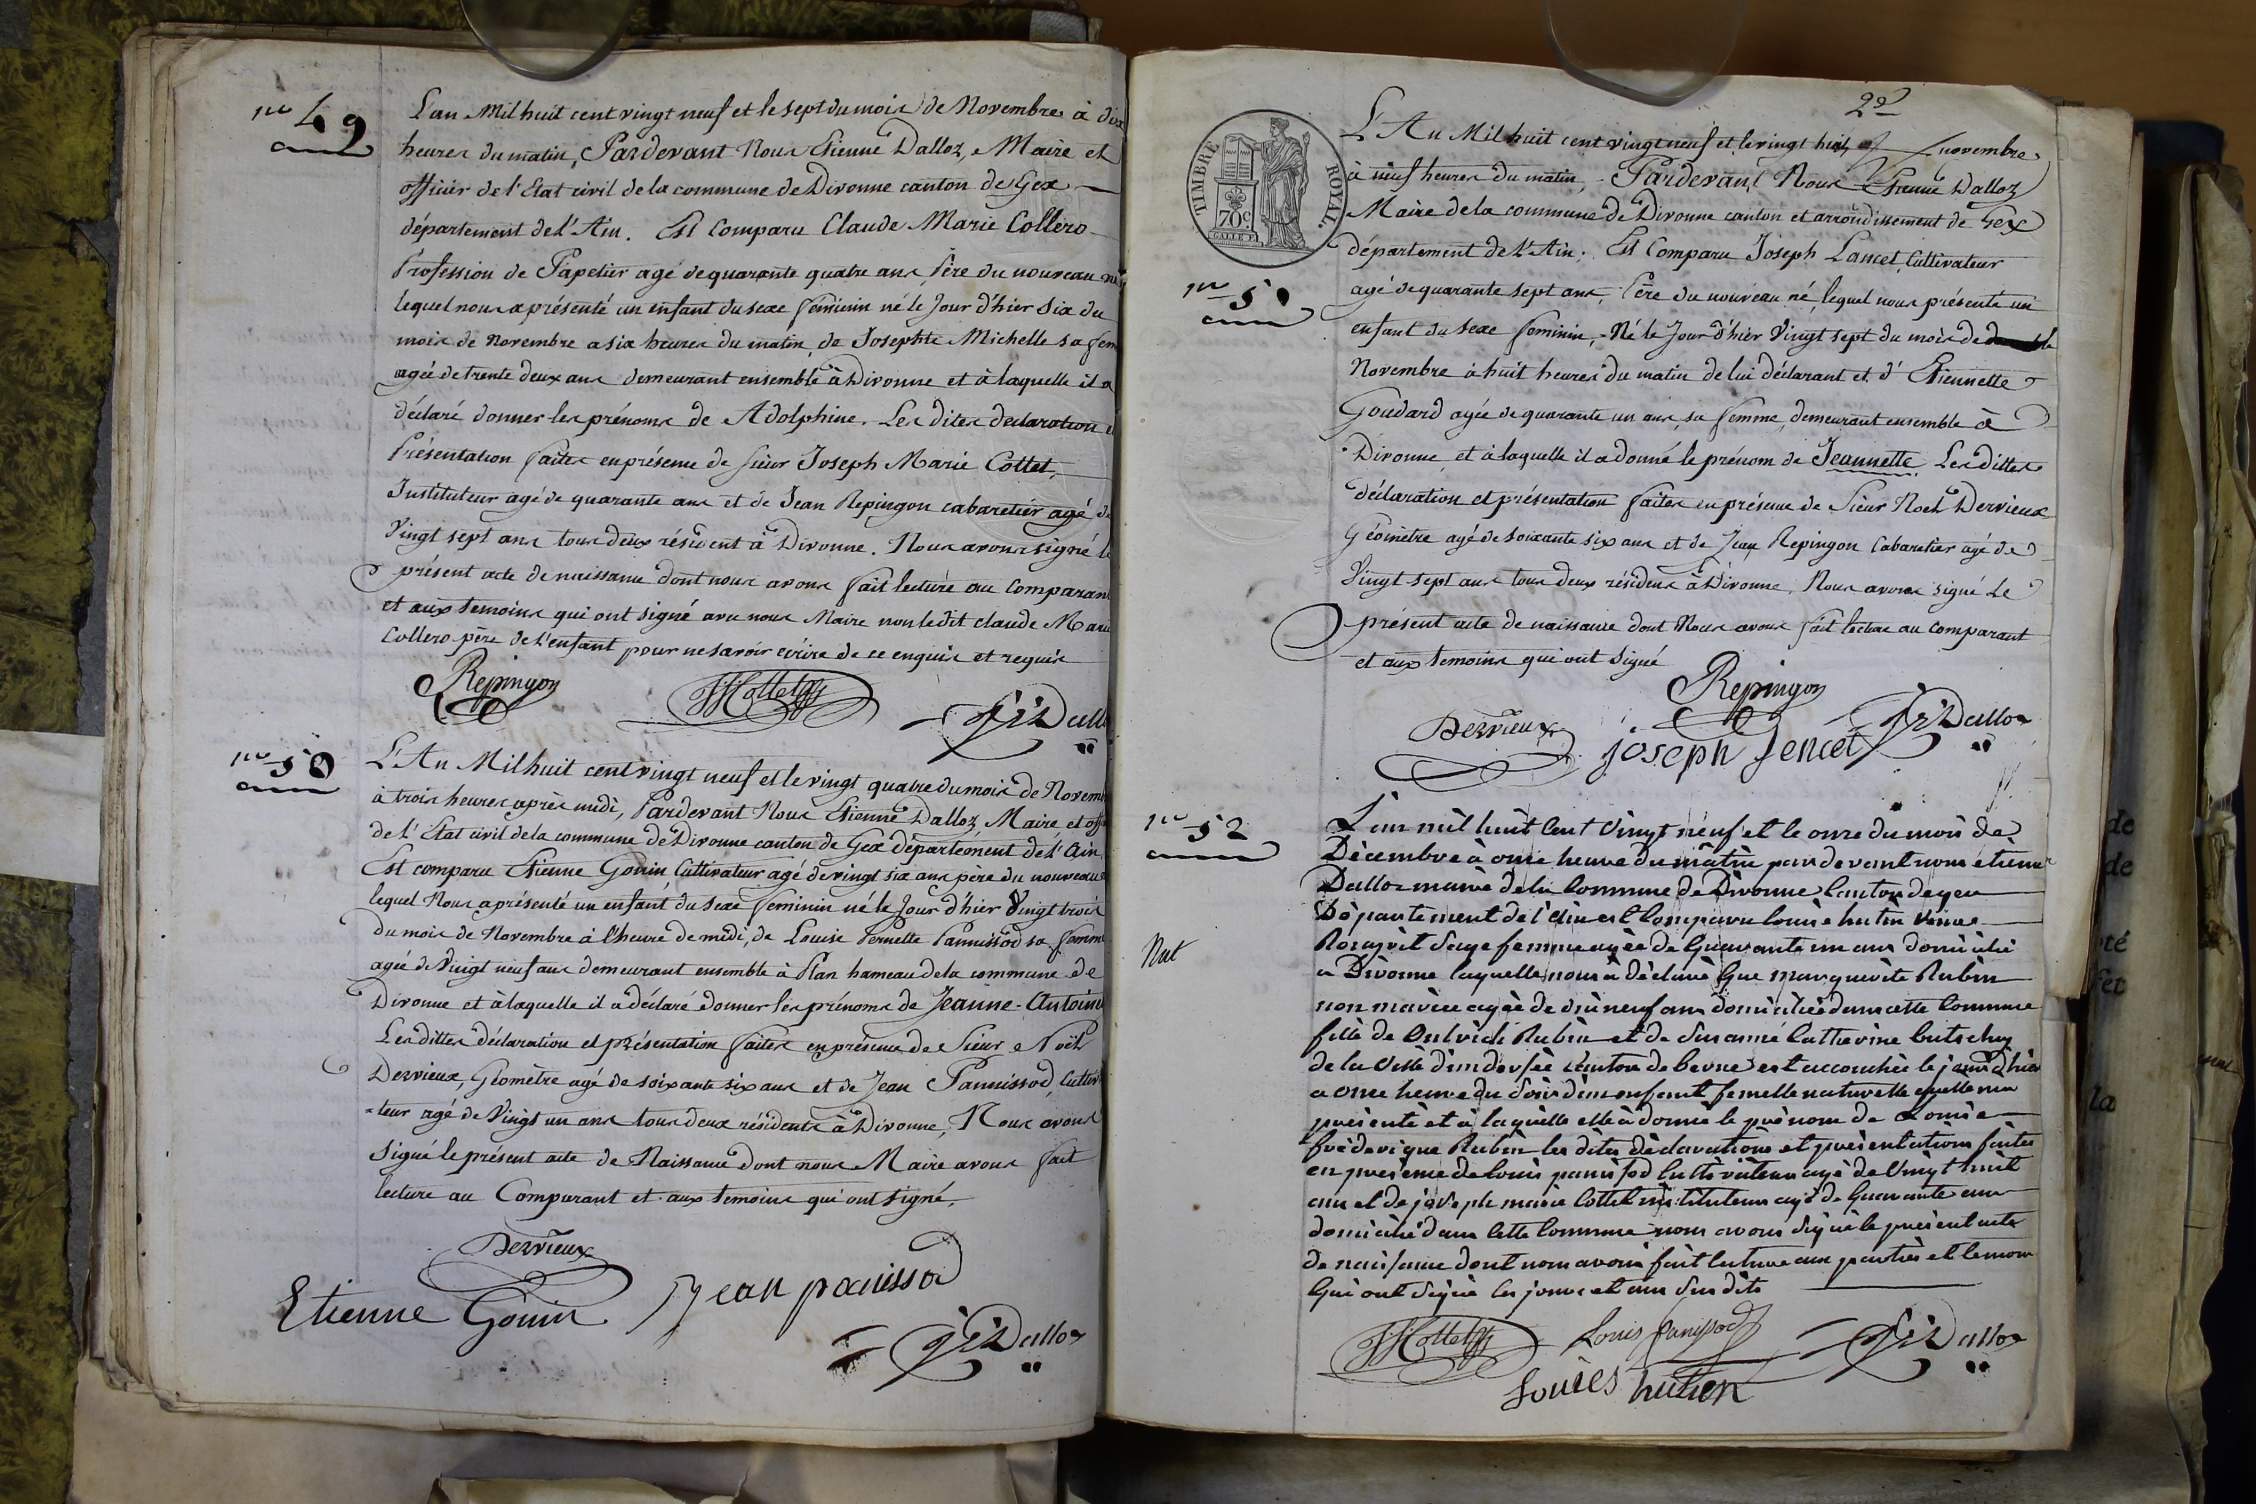 no 49
L'an Mil huit cent vingt neuf et le sept du mois de Novembre à dix
heures du matin, Pardevant Nous Etienne Dalloz, Maire et
officier de l'Etat civil de la commune de Divonne canton de Gex
département de l'Ain. Est Comparu Claude Marie Collero
Profession de Papetier agé de quarante quatre ans, Père du nouveau né
lequel nous a présenté un enfant du sexe féminin né le Jour d'hier six du
mois de Novembre a six heures du matin, de Josephte Michelle sa fem
agée de trente deux ans demeurant ensemble à Divonne et à laquelle il a
déclaré donner les prénoms de Adolphine. Les dites declaration et
Présentation faites en présence de sieur Joseph Marie Cottet,
Instituteur agé de quarante ans et de Jean Repingon cabaretier agé de
Vingt sept ans tous deux résident à Divonne. Nous avons signé le
présent acte de naissance dont nous avons fait lecture au Comparant
et aux temoins qui ont signé avec nous Maire non ledit claude Marie
Collero père de l'enfant pour ne savoir écrire de ce enquis et requis
Repingon JMCottet Dalloz
no 50
L'An Mil huit cent vingt neuf et le vingt quatre du mois de Novem
à trois heures après midi, Pardevant Nous Etienne Dalloz, Maire et off
de l'Etat civil de la commune de Divonne canton de Gex département de l'Ain
Est comparu Etienne Gouin Cultivateur agé de vingt six ans père du nouveau
lequel Nous a présenté un enfant du sexe féminin né le Jour d'hier Vingt trois
du mois de Novembre à l'heure de midi, de Louise Pernette Pannissod sa femme
agée de Vingt neuf ans demeurant ensemble à Plan hameau de la commune de
Divonne et à laquelle il a déclaré donner les prénoms de Jeanne-Antoine
Les dittes déclaration et présentation faites en présence de Sieur Noël
Dervieux, Géomètre agé de soixante six ans et de Jean Pannissod, Cultiva
-teur agé de Vingt un ans tous deux résidents à Divonne, Nous avons
signé le présent acte de Naissance dont nous Maire avons fait
lecture au Comparant et aux temoins qui ont signé.
Dervieux
Etienne Gouin Jean panissod
Dalloz
29
TIMBRE ROYAL.
70c
no 51
L'An Mil huit cent vingt neuf et le vingt huit novembre
à neuf heures du matin, Pardevant Nous Etienne Dalloz
Maire de la commune de Divonne canton et arrondissement de Gex
département de l'Ain; Est Comparu Joseph Lancet, Cultivateur
agé de quarante sept ans, Père du nouveau né, lequel nous présenté un
enfant du sexe feminin, Né le Jour d'hier Vingt sept du mois de
Novembre à huit heures du matin de lui déclarant et d'Etiennette
Goudard agée de quarante un ans, sa femme, demeurant ensemble à
Divonne et à laquelle il a donné le prénom de Jeannette. Les dittes
déclaration et présentation faites en présence de Sieur Noël Dervieux
Géomètre agé de soixante six ans et de Jean Repingon Cabaretier agé de
Vingt sept ans tous deux résidens à Divonne, Nous avons signé Le
présent acte de naissance dont Nous avons fait lecture au comparant
et aux temoins qui ont signé
Repingon
Dervieux joseph Lencet Dalloz
no 52
Nat
L'an mil huit cent vingt neuf et le onze du mois de
Décembre à onze heure du mâtin par devant nous étienne
Dalloz maire de la Commune de Divonne Canton de gex
Département de l'Ain est Comparu louise hutin veuve
sage femme agée de Quarante un ans domicilié
a Divonne laquelle nous à déclaré Que marguerite Rubin
non mariée agée de dix neuf ans domiciliée dans cette Commune
fille de Oulrich Rubin et de Susanne Catherine
de la Ville Canton de berne est accouchée le jour d'hier
a onze heure du soir d'un enfant femelle naturelle quelle ma
présenté et à laquelle elle à donné le prénom de Louise
frédérique Rubin les dites déclarations et présentations faites
en presence de louis panissod Cultivateur agé de Vingt huit
ans et de joseph marie Cottet instituteur agé de Quarante ans
domicilié dans Cette Commune nous avons signé le present acte
de naissance dont nous avons fait lecture aux parties et temoin
Qui ont signé les jours et ans susdits
JMCottet Louis panissod Dalloz
Louies hutien